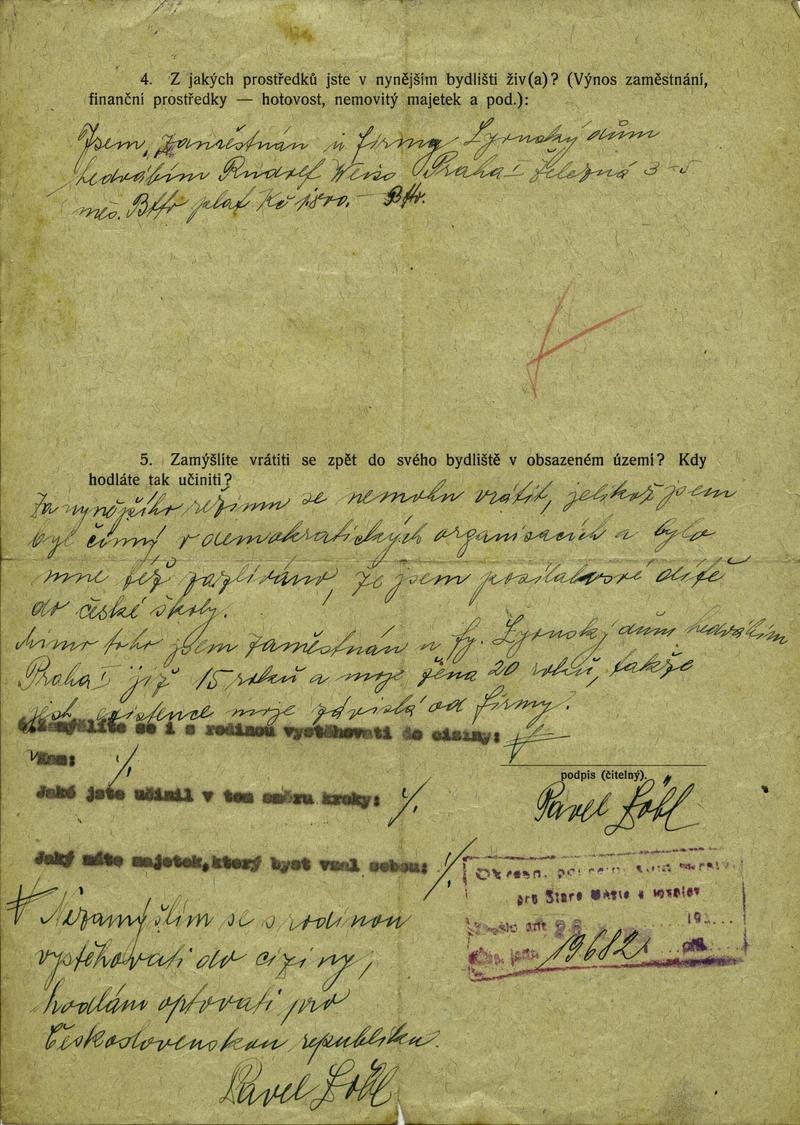 4. Z jakých prostředků jste v nynějším bydlišti živ(a)? (Výnos zaměstnání,
finanční prostředky — hotovost, nemovitý majetek a pod.):
Jsem zaměstnán u firmy Lyonský dům
hedvábím Rudolf Weiss Praha I Železná 3-5
měs. Btto plat Kč 1800. Btto.
5. Zamýšlíte vrátiti se zpět do svého bydliště v obsazeném území? Kdy
hodláte tak učiniti?
Za nynějšího režimu se nemohu vrátit, jelikož jsem
byl činný v demokratických organisacích a bylo
mne též zazlíváno, že jsem posílal své dítě
do české školy.
Mimo toho jsem zaměstnán u fy. Lyonský dům hedvábím
Praha I již 15 roků a moje žena 20 roků, takže
existence moje závislá od firmy.
Zamýšlíte se i s rodinou vystěhovati do ciziny:
Kam: ·/.
podpis (čitelný).
Jaké jste učinil v tom směru kroky: ·/.
Pavel Löbl
Jaký máte majetek, který byst vzal sebou: ·/.
pro Staré Město a Josefov
19
19682
Nezamýšlím se s rodinou
vystěhovati do ciziny,
hodlám optovati pro
Československou republiku.
Pavel Löbl